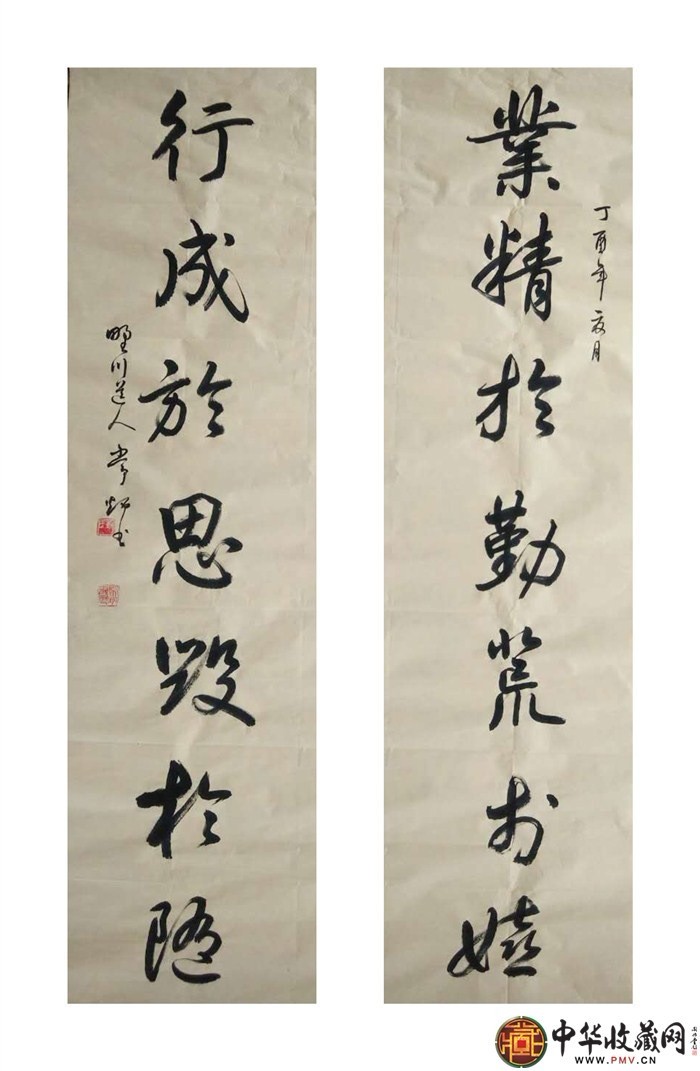 丁酉年夏月
業精於勤荒於嬉
行成於思毁於随
野川道人
中华收藏网
WWW.PMV.CN